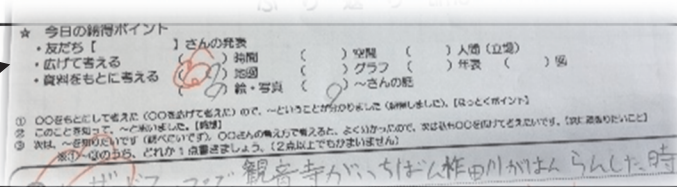 ☆ 今日の納得ポイント
・友だち【 】さんの発表
・広げて考える ( )時間 ( )空間 ( )人間（立場）
・資料をもとに考える ( )地図 ( )グラフ ( )年表 ( )図
( )絵・写真 ( )～さんの話
① ○○をもとにして考えた（○○を広げて考えた）ので、～ということが分かりました（納得しました）。【なっとくポイント】
② このことを知って、～と思いました。【感想】
③ 次は、～を知りたいです（調べたいです）。○○さんの考え方で考えると、よく分かったので、次は私も○○を広げて考えたいです。
※①～③のうち、どれか1点書きましょう。（2点以上でもかまいません）
観音寺がいちばん柞田川がはんらんした時